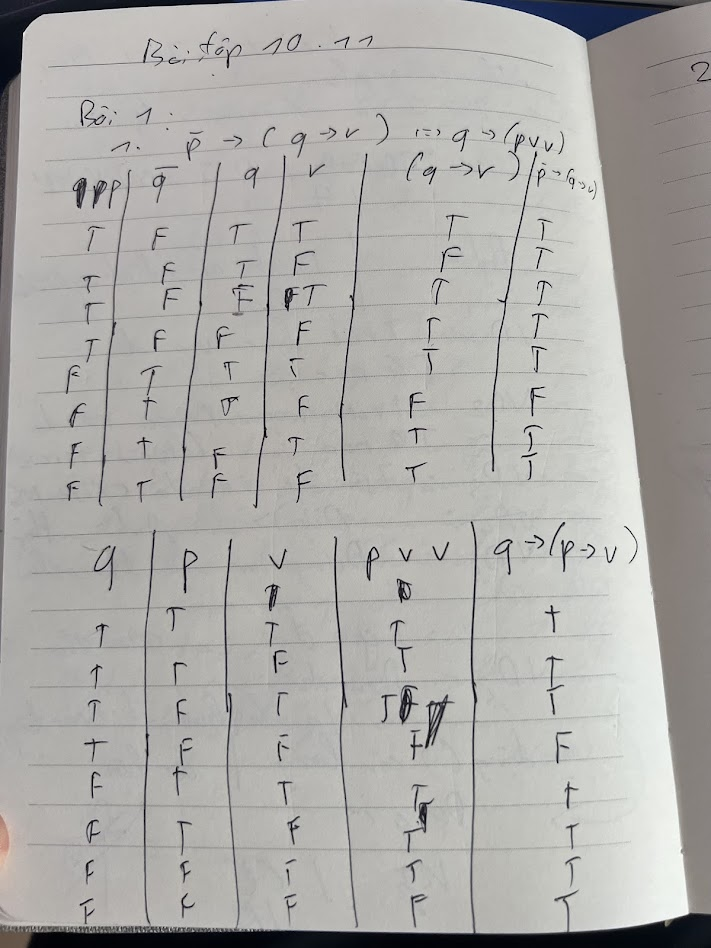 Bài tập 10.11
Bài 1:
1. p̄ → (q → v) <=> q → (p ∨ v)
p q̄ q v (q → v) p̄ → (q → v)
T F T T T T
T F T F F T
T F F T T T
T F F F T T
F T T T T T
F T T F F F
F T F T T T
F T F F T T
q p v p ∨ v q → (p → v)
T T T T T
T T F T T
T F T T T
T F F F F
F T T T T
F T F T T
F F T T T
F F F F T
2